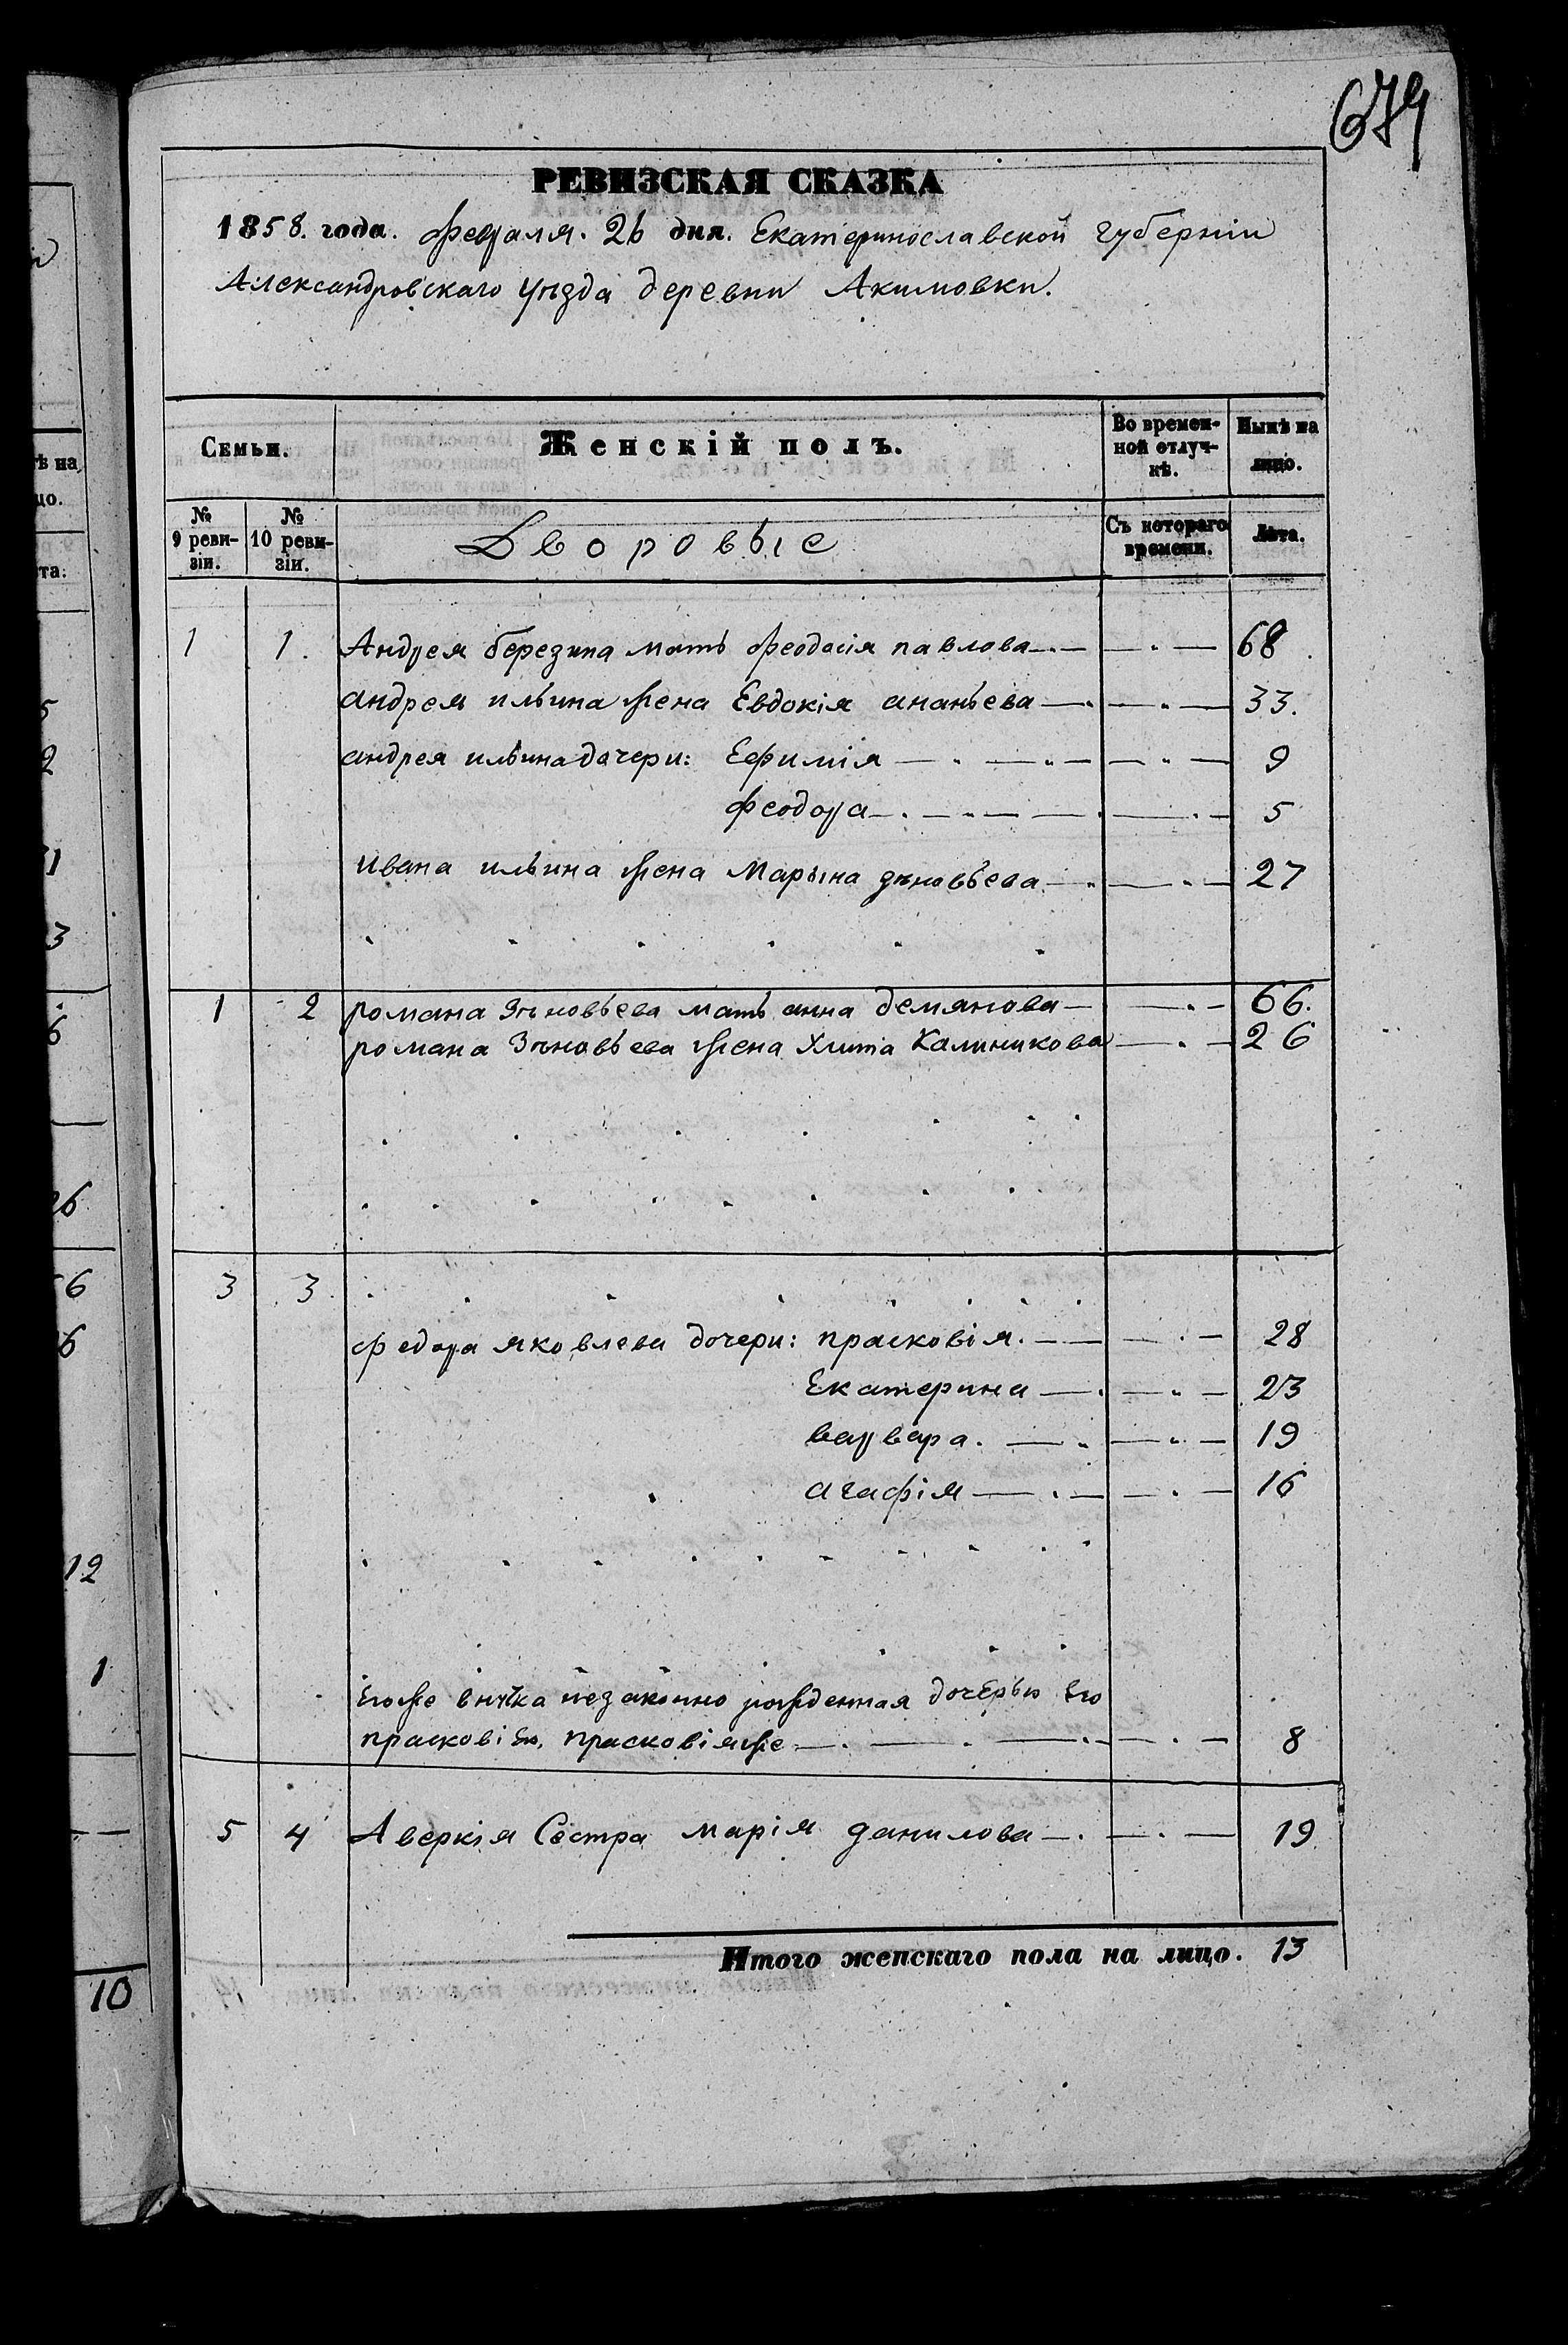 679
РЕВИЗСКАЯ СКАЗКА
1858. года. февраля. 26 дня. Екатеринославской губерніи
Александровскаго уѣзда деревни Акимовки.
Семьи. Женскій полъ. Во времен- Нынѣ на
ной отлуч- лицо.
кѣ.
№ № Дворовые Съ котораго Лѣта.
9 реви- 10 реви- времени.
зіи. зіи.
1 1. Андрея березина мать феодосія павлова 68.
андрея ильина жена Евдокія ананьева 33.
андрея ильина дочери: Ефимія 9
феодора 5
ивана ильина жена Марьина зѣновьева 27
1 2 романа Зѣновьева мать анна демянова 66.
романа Зѣновьева жена Улита Калиникова 26
3 3.
федора яковлева дочери: прасковія. 28
Екатерина 23
варвара. 19
агафія 16
Егоже внучка незаконно рожденная дочерью Его
прасковіею, прасковіяже 8
5 4 Аверкія Сестра марія данилова 19
Итого женскаго пола на лицо. 13
ѣ на
цо.
та:
5
2
1
3
6
26
6
6
12
1
10